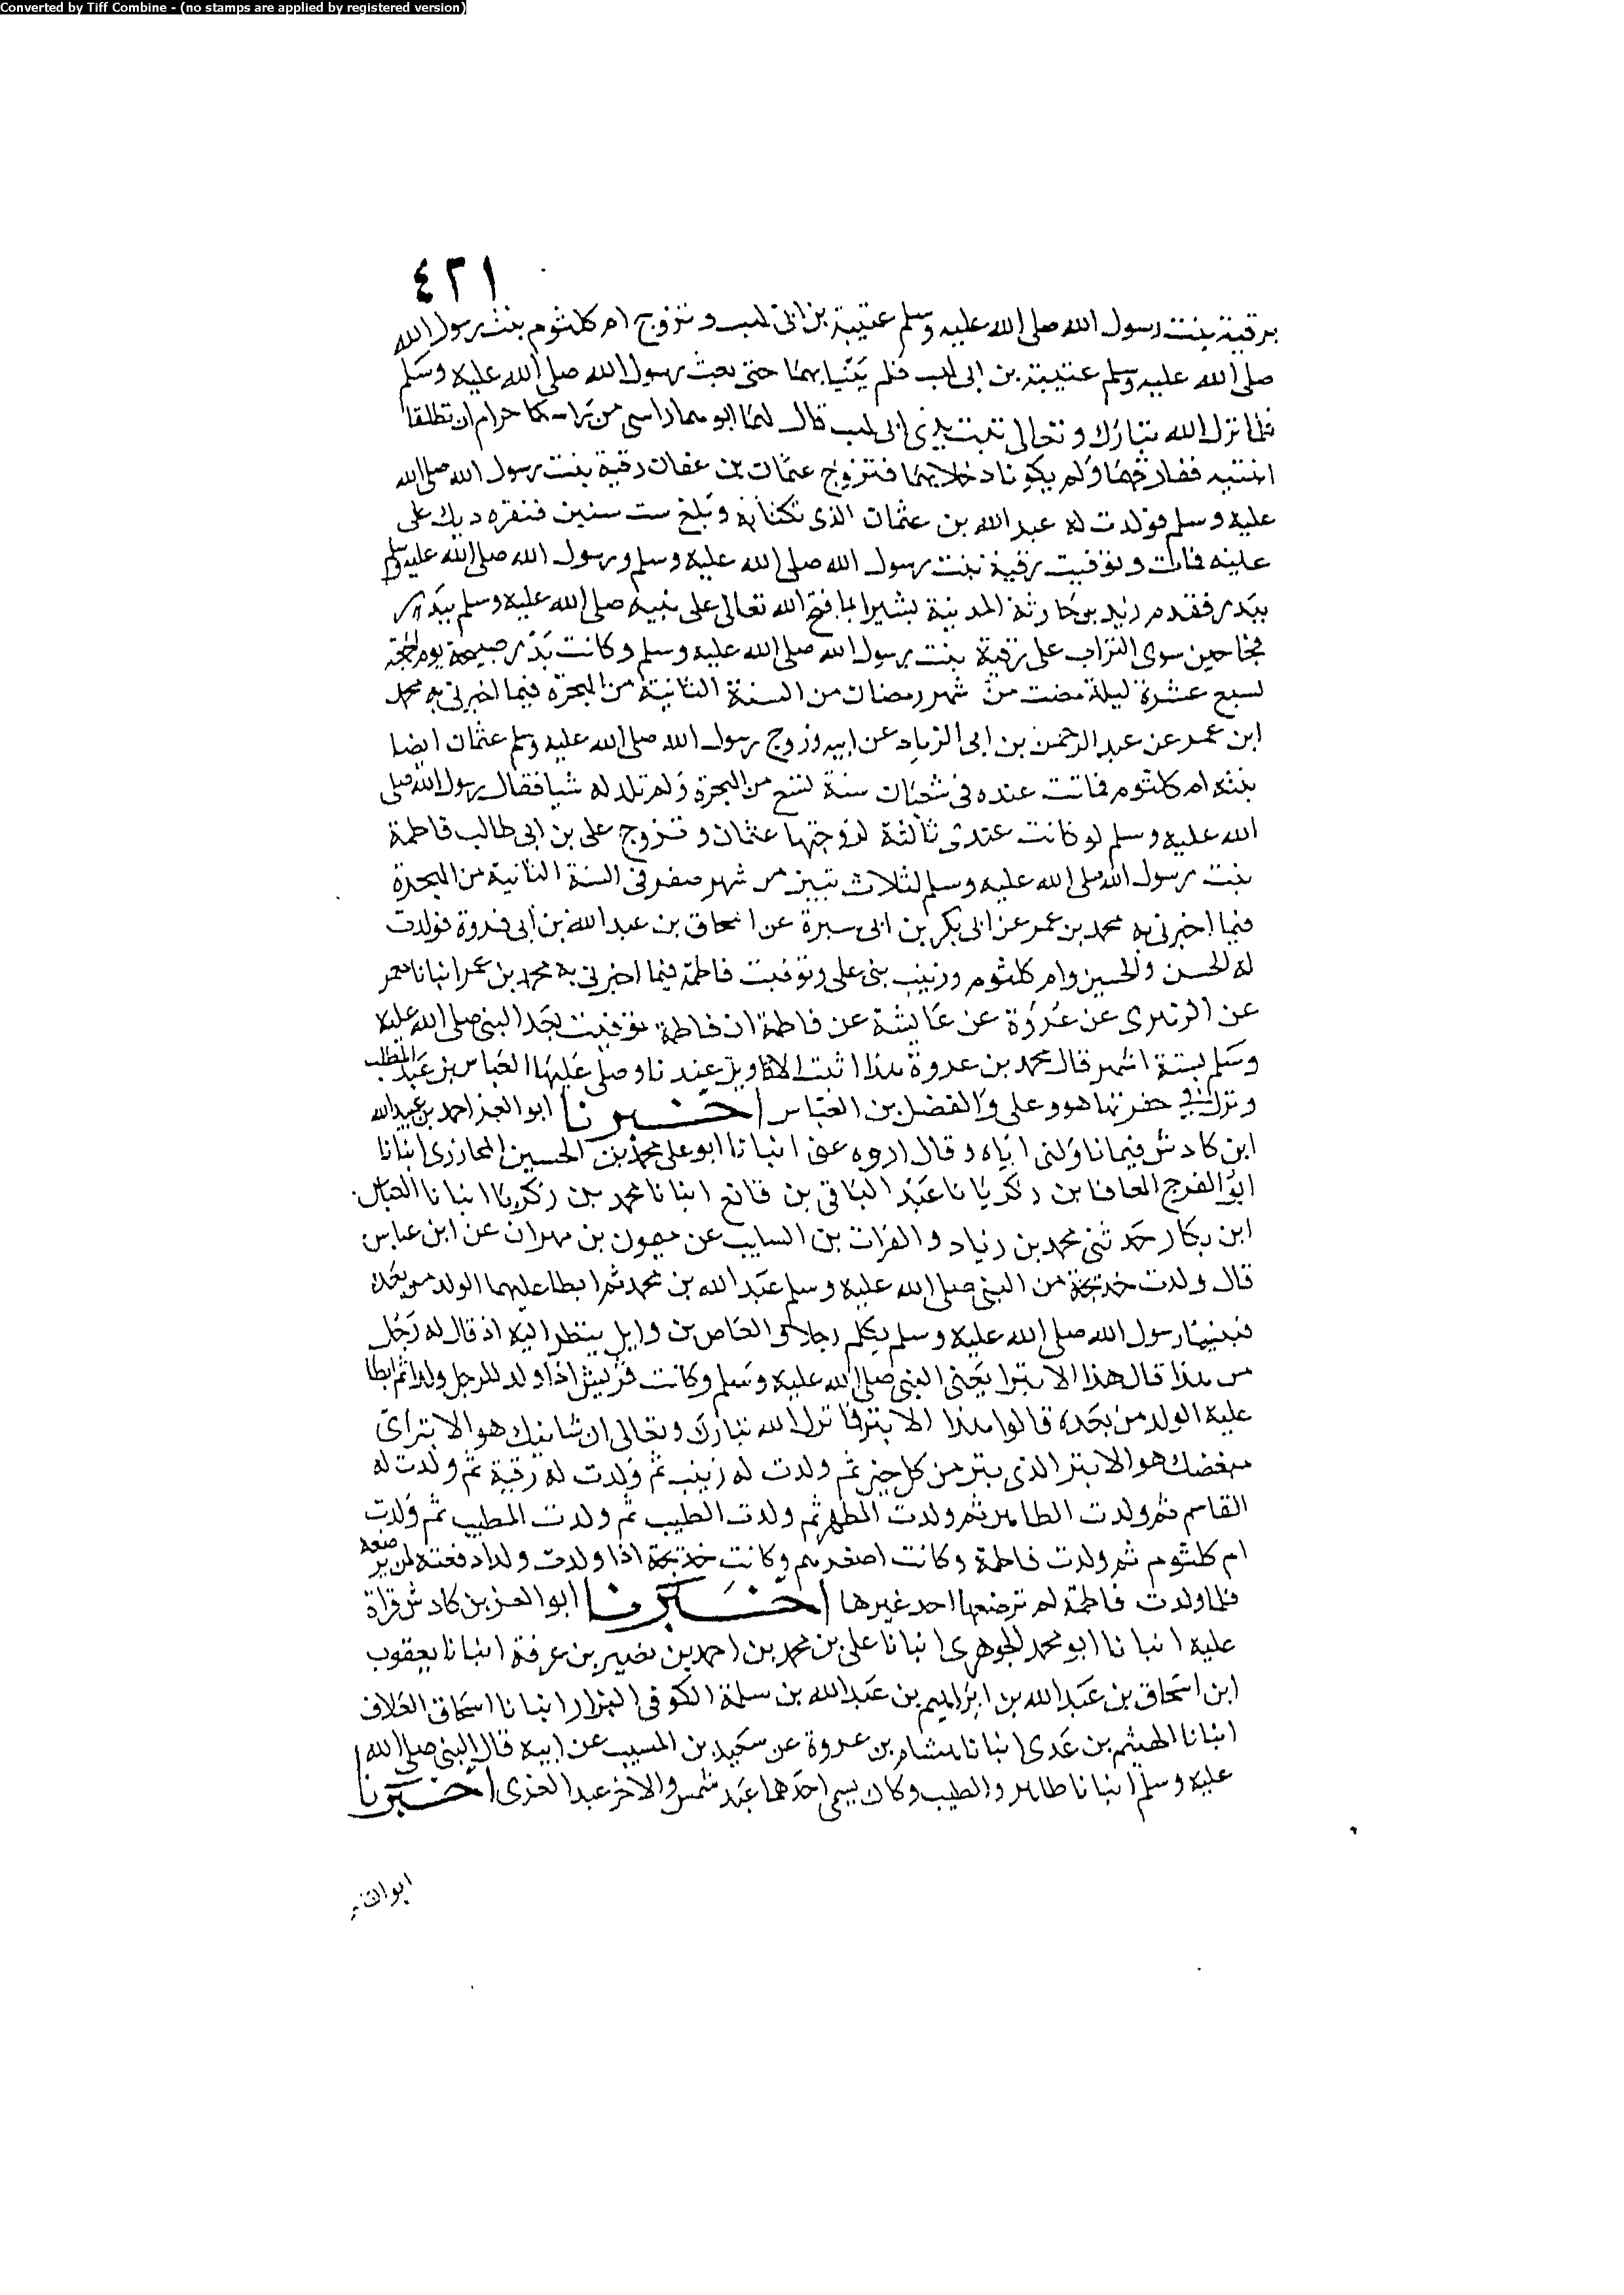 Converted by Tiff Combine - (no stamps are applied by registered version)
٤٢١
برقية بنت رسول الله صلى الله عليه وسلم عتيبة بن ابى لهب وتزوج ام كلثوم بنت رسول الله
صلى الله عليه وسلم عتيبة بن ابى لهب فلم يبنيا بهما حتى بعث رسول الله صلى الله عليه وسلم
فلما نزل الله تبارك وتعالى تبت يدى ابى لهب قال لهما ابوهما راسى من حرام ان تطلقا
ابنتيه ففارقهما ولم يكونا دخلا بهما فتزوج عثمان بن عفان رقية بنت رسول الله صلى الله
عليه وسلم فولدت له عبد الله بن عثمان الذى تكنا به وبلغ ست سنين فنقره ديك على
عينه فمات وتوفيت رقية بنت رسول الله صلى الله عليه وسلم ورسول الله صلى الله عليه وسلم
ببدر فقدم زيد بن حارثة المدينة بشيرا بما فتح الله تعالى على نبيه صلى الله عليه وسلم ببدر
فجا حين سوى التراب على رقية بنت رسول الله صلى الله عليه وسلم وكانت بدر صبيحة يوم الجمعة
لسبع عشرة ليلة مضت من شهر رمضان من السنة الثانية من الهجرة فيما اخبرنى به محمد
ابن عمر عن عبد الرحمن بن ابى الزياد عن ابيه وزوج رسول الله صلى الله عليه وسلم عثمان ايضا
بنته ام كلثوم فماتت عنده فى شعبان سنة تسع من الهجرة ولم تلد له شيا فقال رسول الله صلى
الله عليه وسلم لو كانت عندى ثالثة لزوجتها عثمان وتزوج على بن ابى طالب فاطمة
بنت رسول الله صلى الله عليه وسلم لثلاث تبين من شهر صفر فى السنة الثانية من الهجرة
فيما اخبرنى به محمد بن عمر عن ابى بكر بن ابى سبرة عن اسحاق بن عبد الله بن ابى فروة فولدت
له الحسن والحسين وام كلثوم وزينب بنى على وتوفيت فاطمة فيما اخبرنى به محمد بن عمر انبانا معمر
عن الزهرى عن عروة عن عايشة عن فاطمة ان فاطمة توفيت بعد النبى صلى الله عليه
وسلم بستة اشهر قال محمد بن عروة هذا اثبت الاقاويل عندنا وصلى عليها العباس بن عبد المطلب
ونزل فى حفرتها هو وعلى والفضل بن العباس اخبرنا ابو العز احمد بن عبيد الله
ابن كادش فيما ناولنى اياه وقال اروه عنى انبانا ابو على محمد بن الحسين الجازرى انبانا
ابو الفرج المعافا بن زكريا نا عبد الباقى بن قانع انبانا محمد بن زكريا انبانا العباس
ابن بكار حدثنى محمد بن زياد والفرات بن السايب عن ميمون بن مهران عن ابن عباس
قال ولدت خديجة من النبى صلى الله عليه وسلم عبد الله بن محمد ثم ابطا عليهما الولد من بعده
فبينما رسول الله صلى الله عليه وسلم يكلم رجلا والعاص بن وايل ينظر اليه اذ قال له رجل
من هذا قال هذا الابتر يعنى النبى صلى الله عليه وسلم وكانت قريش اذا ولد للرجل ولد ثم ابطا
عليه الولد من بعده قالوا هذا الابتر فانزل الله تبارك وتعالى ان شانيك هو الابتر اى
مبغضك هو الابتر الذى بتر من كل خير ثم ولدت له زينب ثم ولدت له رقية ثم ولدت له
القاسم ثم ولدت الطاهر ثم ولدت المطهر ثم ولدت الطيب ثم ولدت المطيب ثم ولدت
ام كلثوم ثم ولدت فاطمة وكانت اصغرهم وكانت خديجة اذا ولدت ولدا دفعته لمن يرضعه
فلما ولدت فاطمة لم ترضعها احد غيرها اخبرنا ابو العز بن كادش قراة
عليه انبانا ابو محمد الجوهرى انبانا على بن محمد بن احمد بن نصير بن عرفة انبانا يعقوب
ابن اسحاق بن عبد الله بن ابراهيم بن عبد الله بن سلمة الكوفى البزار انبانا اسحاق العلاف
انبانا الهيثم بن عدى انبانا هشام بن عروة عن سعيد بن المسيب عن ابيه قال للنبى صلى الله
عليه وسلم ابنانا طاهر والطيب وكان يسمى احدهما عبد شمس والاخر عبد العزى اخبرنا